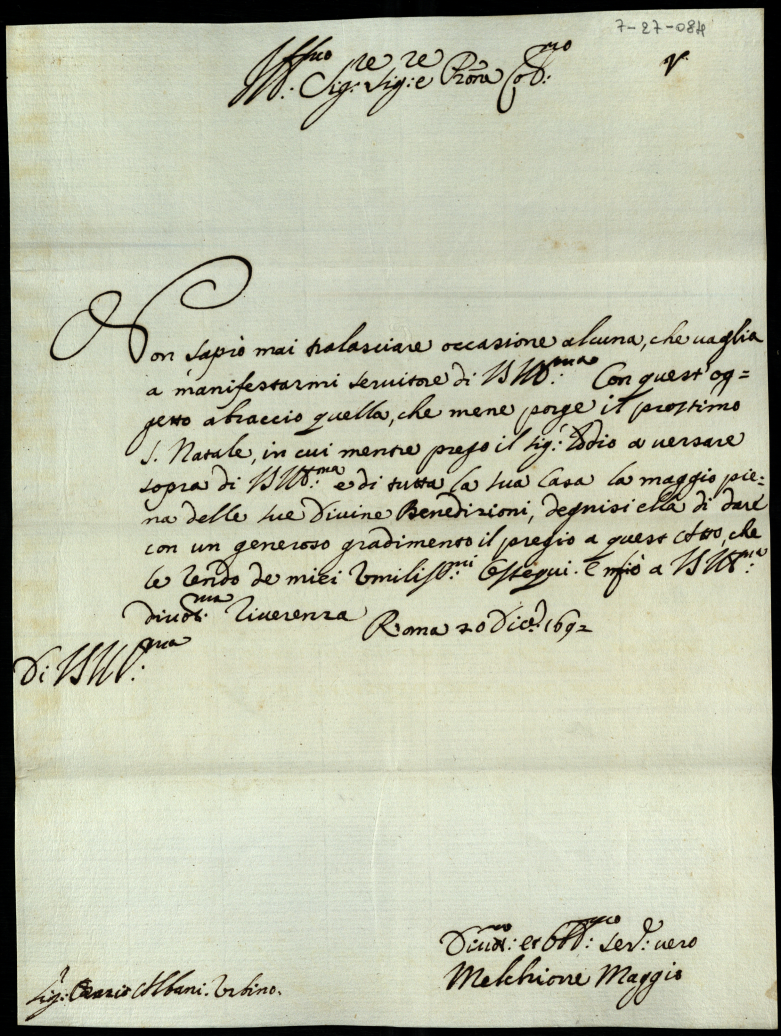 7-27-084
Ill:mo Sig:re Sig:re e Prōne Col:mo
Non saprò mai tralasciare occasione alcuna, che vaglia
a manifestarmi servitore di VS Ill:ma Con quest'og=
getto abraccio quella, che mene porge il prossimo
S. Natale, in cui mentre prego il Sig: Iddio a versare
sopra di VS Ill:ma e di tutta la sua Casa la maggio pie=
na delle sue Divine Benedizioni, degnisi ella di dare
con un generoso gradimento il pregio a quest'Atto, che
le rendo de miei Umiliss:mi Ossequi. E fiò a VS Ill:ma
divot:ma riverenza Roma 20 Dice 1692
Di VS Ill:ma
Divot:mo et Obl:mo Ser: vero
Melchiorre Maggio
Sig: Orazio Albani. Urbino.